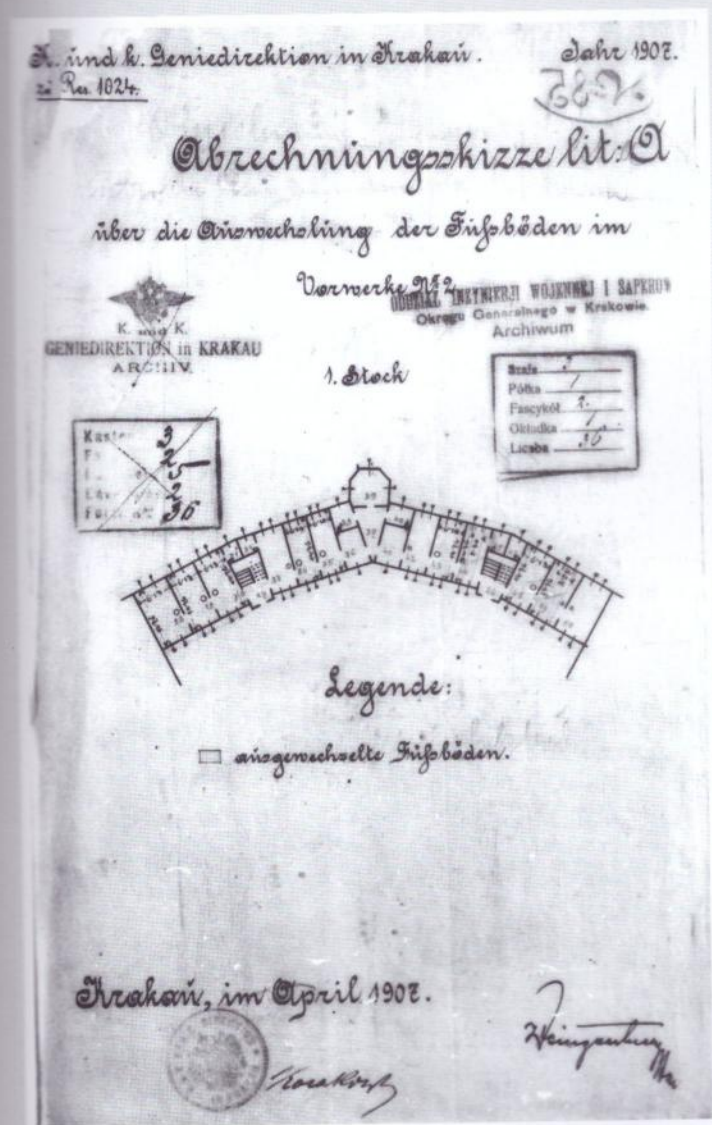 K. und k. Geniedirektion in Krakau.
Jahr 1907.
zú Res. 1024.
Abrechnungsskizze lit: A
über die Auswechslung der Fußböden im
Vorwerke No 2
ODDZIAŁ INŻYNIERJI WOJENNEJ I SAPERÓW
Okręgu Generalnego w Krakowie.
Archiwum
K. und K.
GENIEDIREKTION in KRAKAU
ARCHIV.
1. Stock
Szafa 3
Półka 1
Fascykół 2.
Okładka 1
Liczba 36
Kasten 3
2
5
2
36
Legende:
ausgewechselte Fußböden.
Krakau, im April 1907.